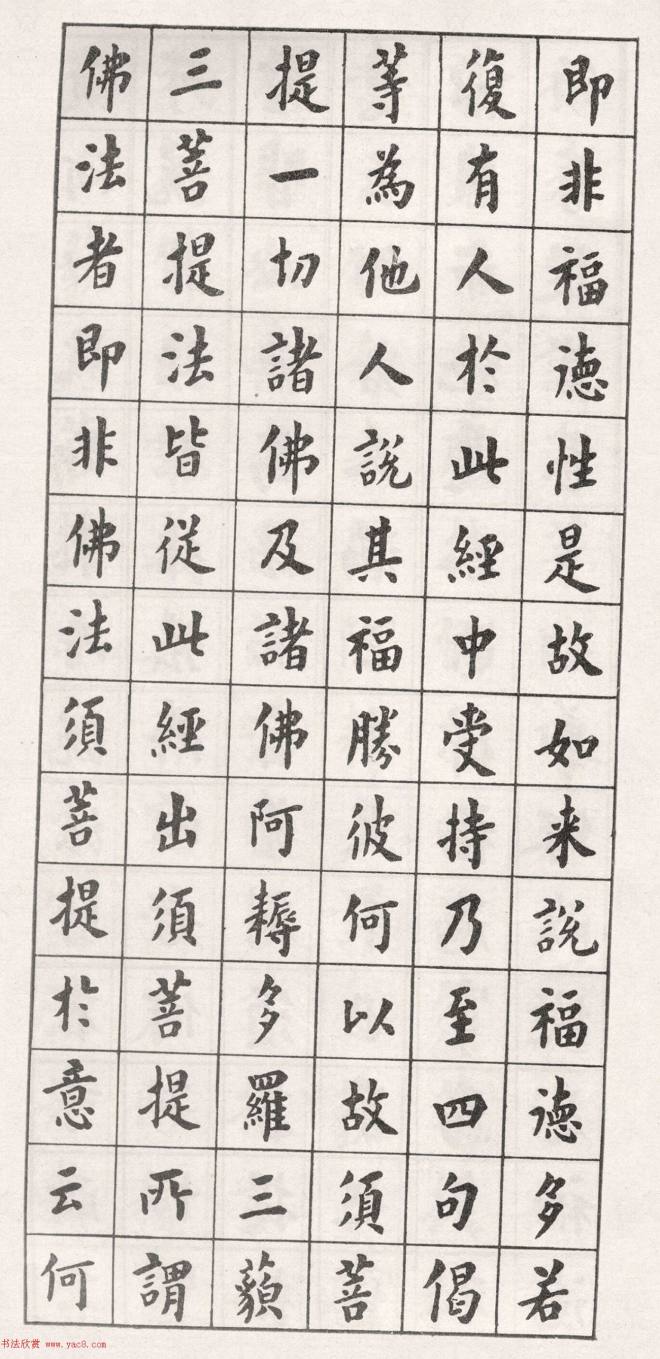 即非福德性是故如来說福德多若
復有人於此經中受持乃至四句偈
等為他人說其福勝彼何以故須菩
提一切諸佛及諸佛阿耨多羅三藐
三菩提法皆從此經出須菩提所謂
佛法者即非佛法須菩提於意云何
书法欣赏 www.yac8.com